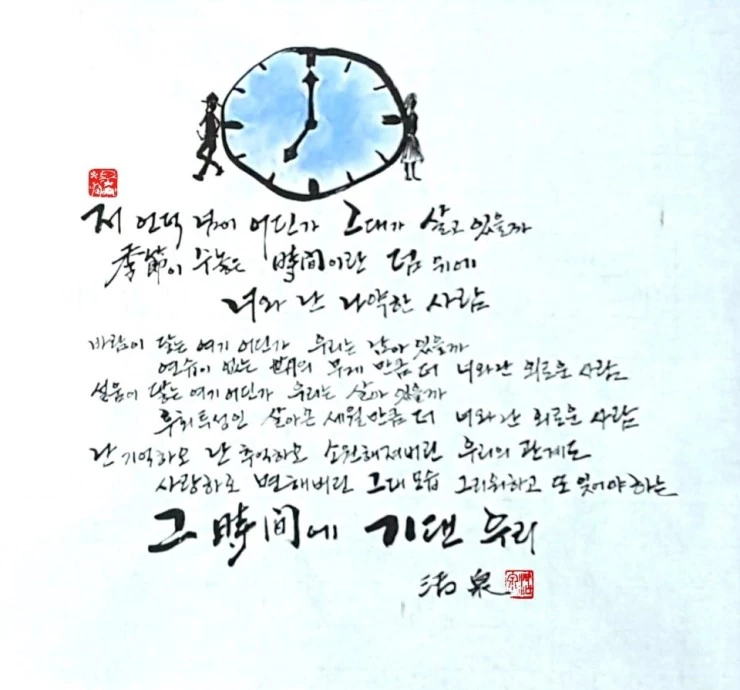 저 언덕 너머 어딘가 그대가 살고 있을까
季節이 수놓은 時間이란 덤 위에
너와 난 나약한 사람
바람이 닿는 여기 어딘가 우리는 남아 있을까
연습이 없는 무게 만큼 더 너와 난 외로운 사람
설움이 닿는 여기 어딘가 우리는 살아 있을까
후회투성인 살아온 세월만큼 더 너와 난 외로운 사람
난 기억하오 난 추억하오 소원해져버린 우리의 관계도
사랑하오 변해버린 그대 모습 그리워하고 또 잊어야 하는
그 時間에 기댄 우리
活泉